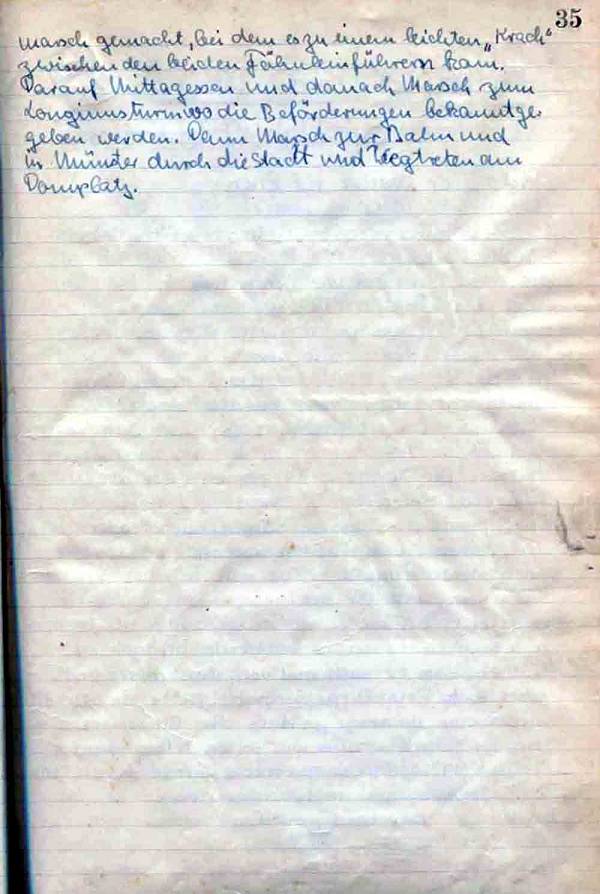 35
marsch gemacht, bei dem es zu einem leichten „Krach“
zwischen den beiden Fähnleinführern kam.
Darauf Mittagessen und danach Marsch zum
Longinusturm wo die Beförderungen bekanntge-
geben werden. Dann Marsch zur Bahn und
in Münster durch die Stadt und Wegtreten am
Domplatz.